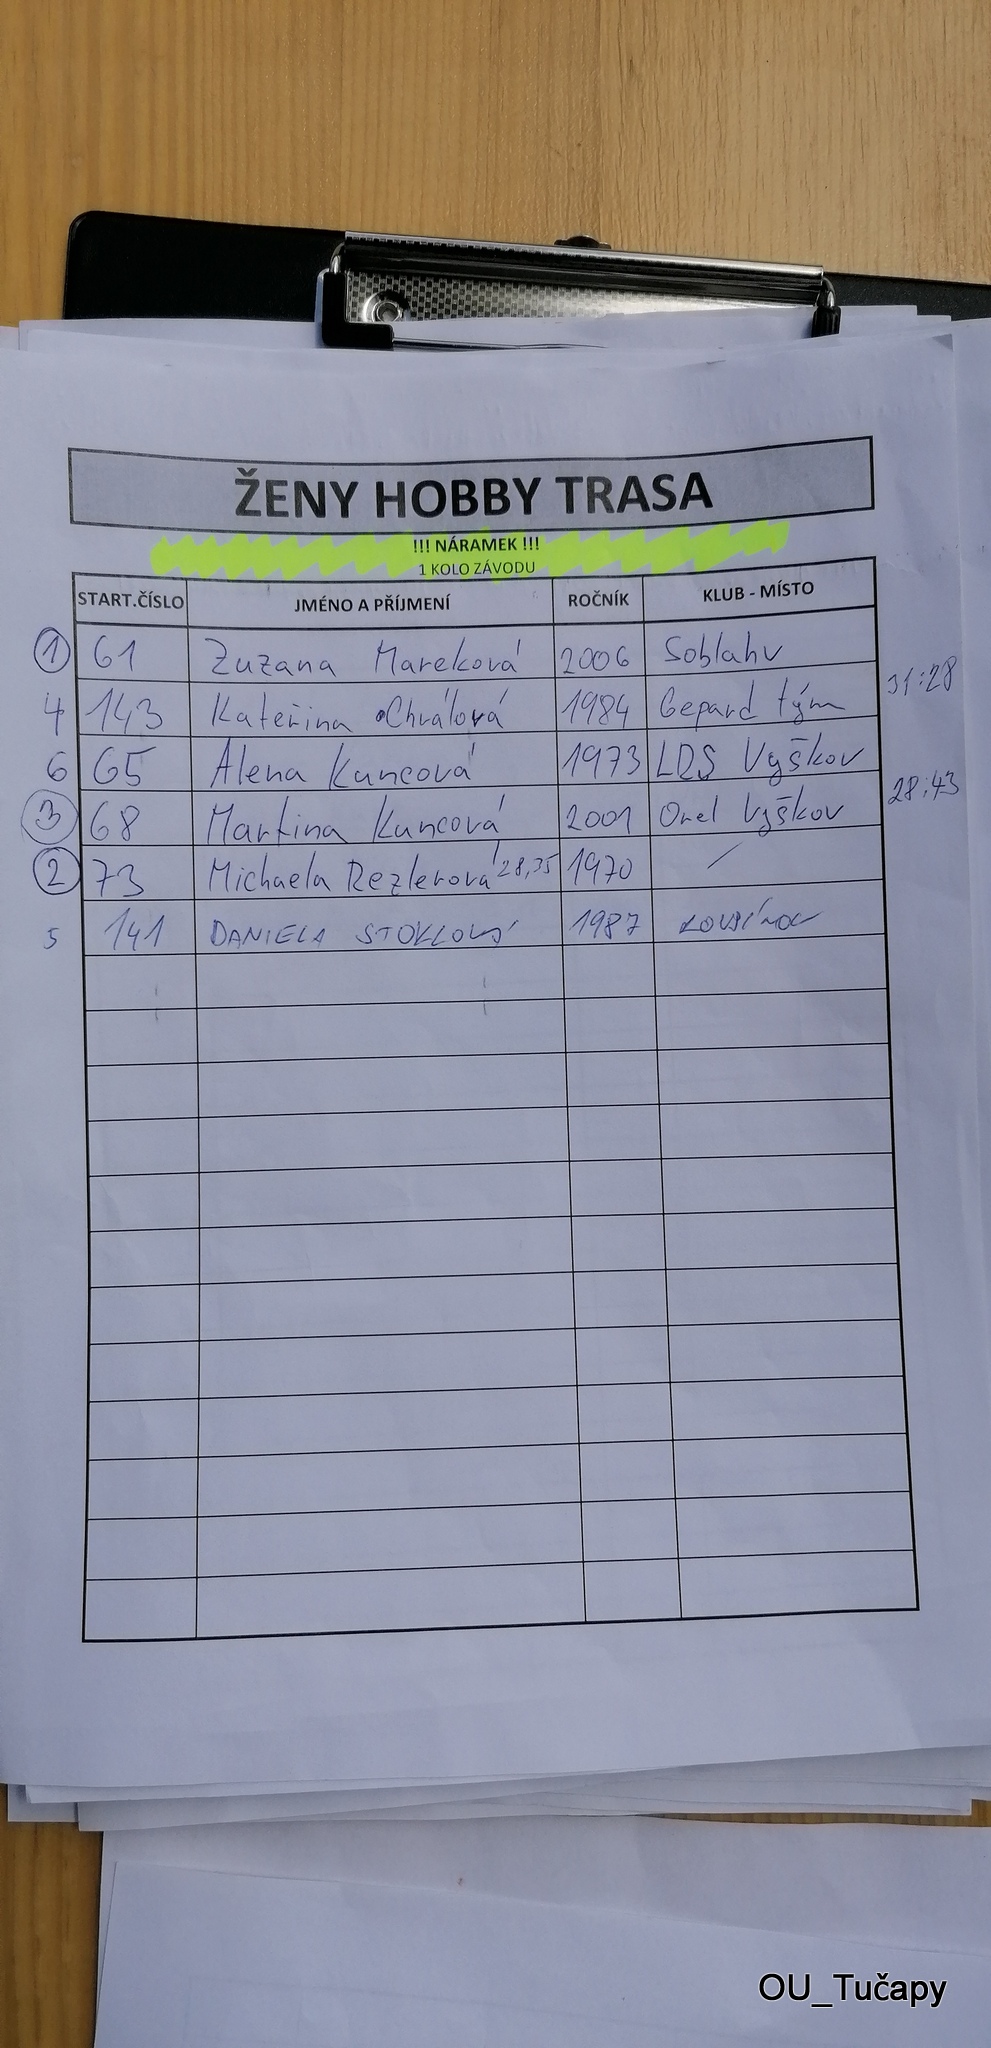 ŽENY HOBBY TRASA
!!! NÁRAMEK !!!
1 KOLO ZÁVODU
START.ČÍSLO JMÉNO A PŘÍJMENÍ ROČNÍK KLUB - MÍSTO
1 61 Zuzana Mareková 2006 Soblahv
31:28
4 143 Kateřina Chrálová 1984 Gepard tým
6 65 Alena Kuncová 1973 LRS Vyškov
28:43
3 68 Martina Kuncová 2001 Orel Vyškov
2 73 Michaela Rezlerová 28,35 1970 /
5 141 DANIELA STOKLOVÁ 1987
OU_Tučapy